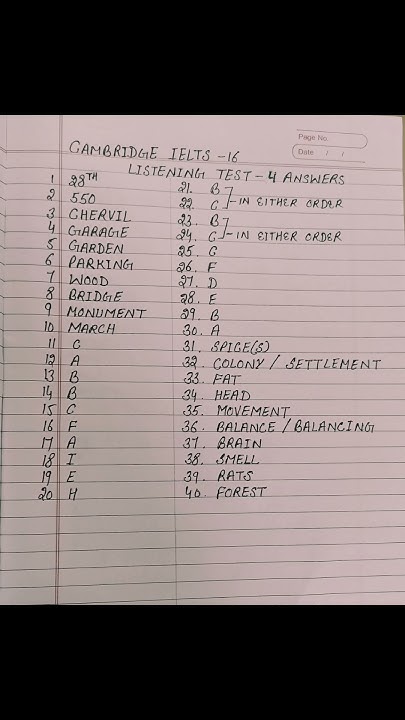 Page No.
Date / /
CAMBRIDGE IELTS -16
LISTENING TEST - 4 ANSWERS
1 28TH
2 550
3 CHERVIL
4 GARAGE
5 GARDEN
6 PARKING
7 WOOD
8 BRIDGE
9 MONUMENT
10 MARCH
11 C
12 A
13 B
14 B
15 C
16 F
17 A
18 I
19 E
20 H
21. B
22. C - IN EITHER ORDER
23. B
24. C - IN EITHER ORDER
25. G
26. F
27. D
28. E
29. B
30. A
31. SPICE(S)
32. COLONY / SETTLEMENT
33. FAT
34. HEAD
35. MOVEMENT
36. BALANCE / BALANCING
37. BRAIN
38. SMELL
39. RATS
40. FOREST